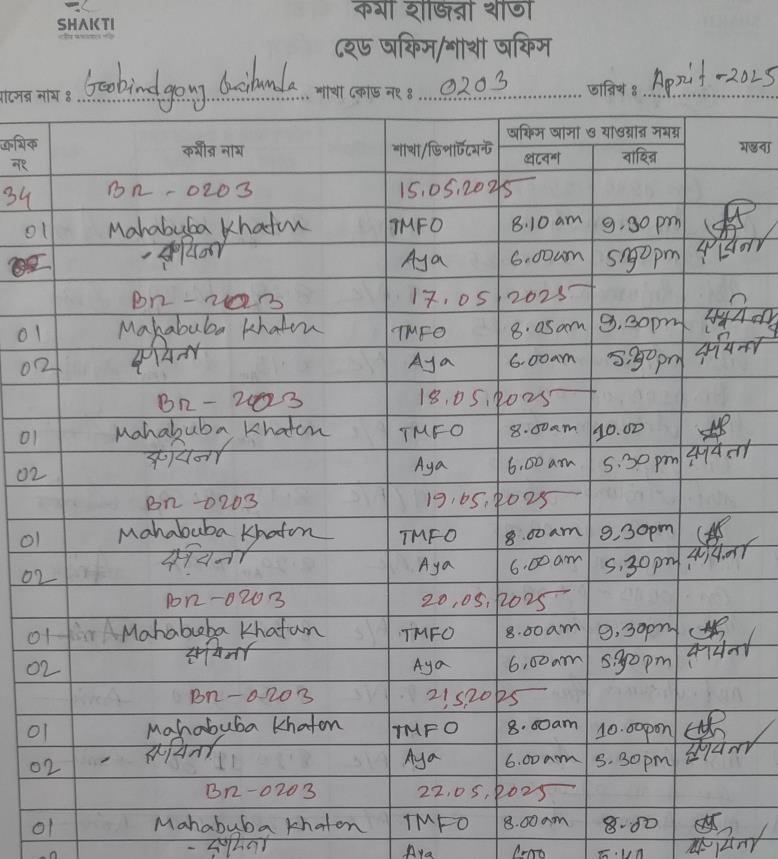 SHAKTI
কর্মী হাজিরা খাতা
হেড অফিস/শাখা অফিস
মাসের নাম : Goobindgong Gaibanda শাখা কোড নং : 0203 তারিখ : April - 2025
ক্রমিক নং কর্মীর নাম শাখা/ডিপার্টমেন্ট অফিস আসা ও যাওয়ার সময় মন্তব্য
প্রবেশ বাহির
34 BR - 0203 15.05.2025
01 Mahabuba Khaton TMFO 8.10 am 9.30 pm
02 Aya 6.00am 5.30pm
BR - 2023 17.05.2025
01 Mahabuba Khaton TMFO 8.05am 9.30pm
02 Aya 6.00am 5.30pm
BR - 2023 18.05.2025
01 Mahabuba Khaton TMFO 8.00am 10.00
02 Aya 6.00 am 5.30 pm
BR - 0203 19.05.2025
01 Mahabuba Khaton TMFO 8.00am 9.30pm
02 Aya 6.00am 5.30pm
BR - 0203 20.05.2025
01 Mahabuba Khatun TMFO 8.00am 9.30pm
02 Aya 6.00am 5.30pm
BR - 0203 21.5.2025
01 Mahabuba Khaton TMFO 8.00am 10.00pm
02 Aya 6.00am 5.30pm
BR - 0203 22.05.2025
01 Mahabuba Khaton TMFO 8.00am 8.00
Aya